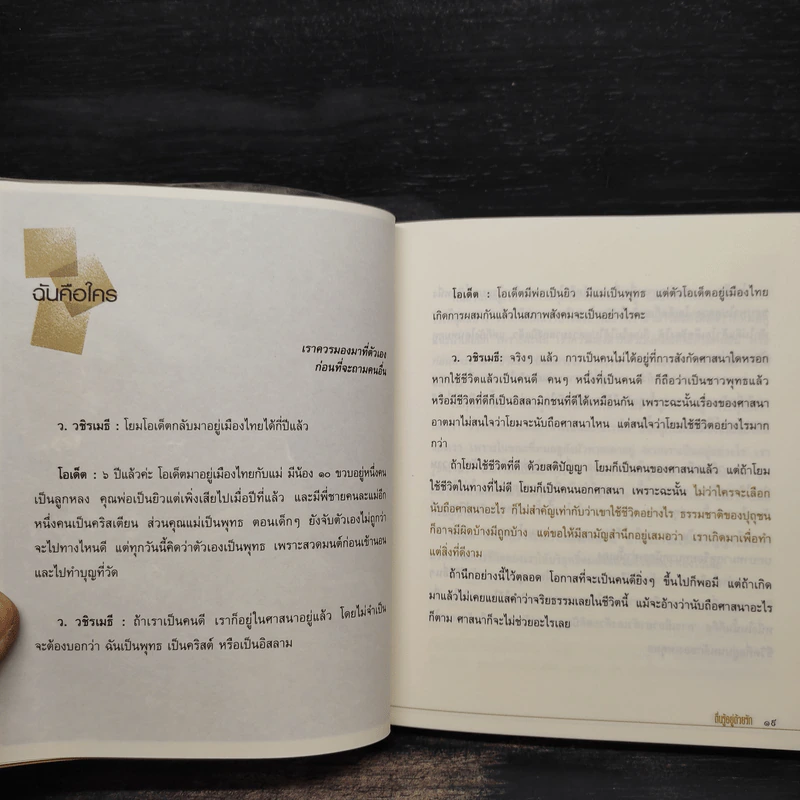 ฉันคือใคร
เราควรมองมาที่ตัวเอง
ก่อนที่จะถามคนอื่น
ว. วชิรเมธี : โยมโอเด็ตกลับมาอยู่เมืองไทยได้กี่ปีแล้ว
โอเด็ต : ๖ ปีแล้วค่ะ โอเด็ตมาอยู่เมืองไทยกับแม่ มีน้อง ๑๐ ขวบอยู่หนึ่งคน
เป็นลูกหลง คุณพ่อเป็นยิวแต่เพิ่งเสียไปเมื่อปีที่แล้ว และมีพี่ชายคนละแม่อีก
หนึ่งคนเป็นคริสเตียน ส่วนคุณแม่เป็นพุทธ ตอนเด็กๆ ยังจับตัวเองไม่ถูกว่า
จะไปทางไหนดี แต่ทุกวันนี้คิดว่าตัวเองเป็นพุทธ เพราะสวดมนต์ก่อนเข้านอน
และไปทำบุญที่วัด
ว. วชิรเมธี : ถ้าเราเป็นคนดี เราก็อยู่ในศาสนาอยู่แล้ว โดยไม่จำเป็น
จะต้องบอกว่า ฉันเป็นพุทธ เป็นคริสต์ หรือเป็นอิสลาม
โอเด็ต : โอเด็ตมีพ่อเป็นยิว มีแม่เป็นพุทธ แต่ตัวโอเด็ตอยู่เมืองไทย
เกิดการผสมกันแล้วในสภาพสังคมจะเป็นอย่างไรคะ
ว. วชิรเมธี: จริงๆ แล้ว การเป็นคนไม่ได้อยู่ที่การสังกัดศาสนาใดหรอก
หากใช้ชีวิตแล้วเป็นคนดี คนๆ หนึ่งที่เป็นคนดี ก็ถือว่าเป็นชาวพุทธแล้ว
หรือมีชีวิตที่ดีก็เป็นอิสลามิกชนที่ดีได้เหมือนกัน เพราะฉะนั้นเรื่องของศาสนา
อาตมาไม่สนใจว่าโยมจะนับถือศาสนาไหน แต่สนใจว่าโยมใช้ชีวิตอย่างไรมาก
กว่า
ถ้าโยมใช้ชีวิตที่ดี ด้วยสติปัญญา โยมก็เป็นคนของศาสนาแล้ว แต่ถ้าโยม
ใช้ชีวิตในทางที่ไม่ดี โยมก็เป็นคนนอกศาสนา เพราะฉะนั้น ไม่ว่าใครจะเลือก
นับถือศาสนาอะไร ก็ไม่สำคัญเท่ากับว่าเขาใช้ชีวิตอย่างไร ธรรมชาติของปุถุชน
ก็อาจมีผิดบ้างมีถูกบ้าง แต่ขอให้มีสามัญสำนึกอยู่เสมอว่า เราเกิดมาเพื่อทำ
แต่สิ่งที่ดีงาม
ถ้านึกอย่างนี้ไว้ตลอด โอกาสที่จะเป็นคนดียิ่งๆ ขึ้นไปก็พอมี แต่ถ้าเกิด
มาแล้วไม่เคยแยแสคำว่าจริยธรรมเลยในชีวิตนี้ แม้จะอ้างว่านับถือศาสนาอะไร
ก็ตาม ศาสนาก็จะไม่ช่วยอะไรเลย
๑๙